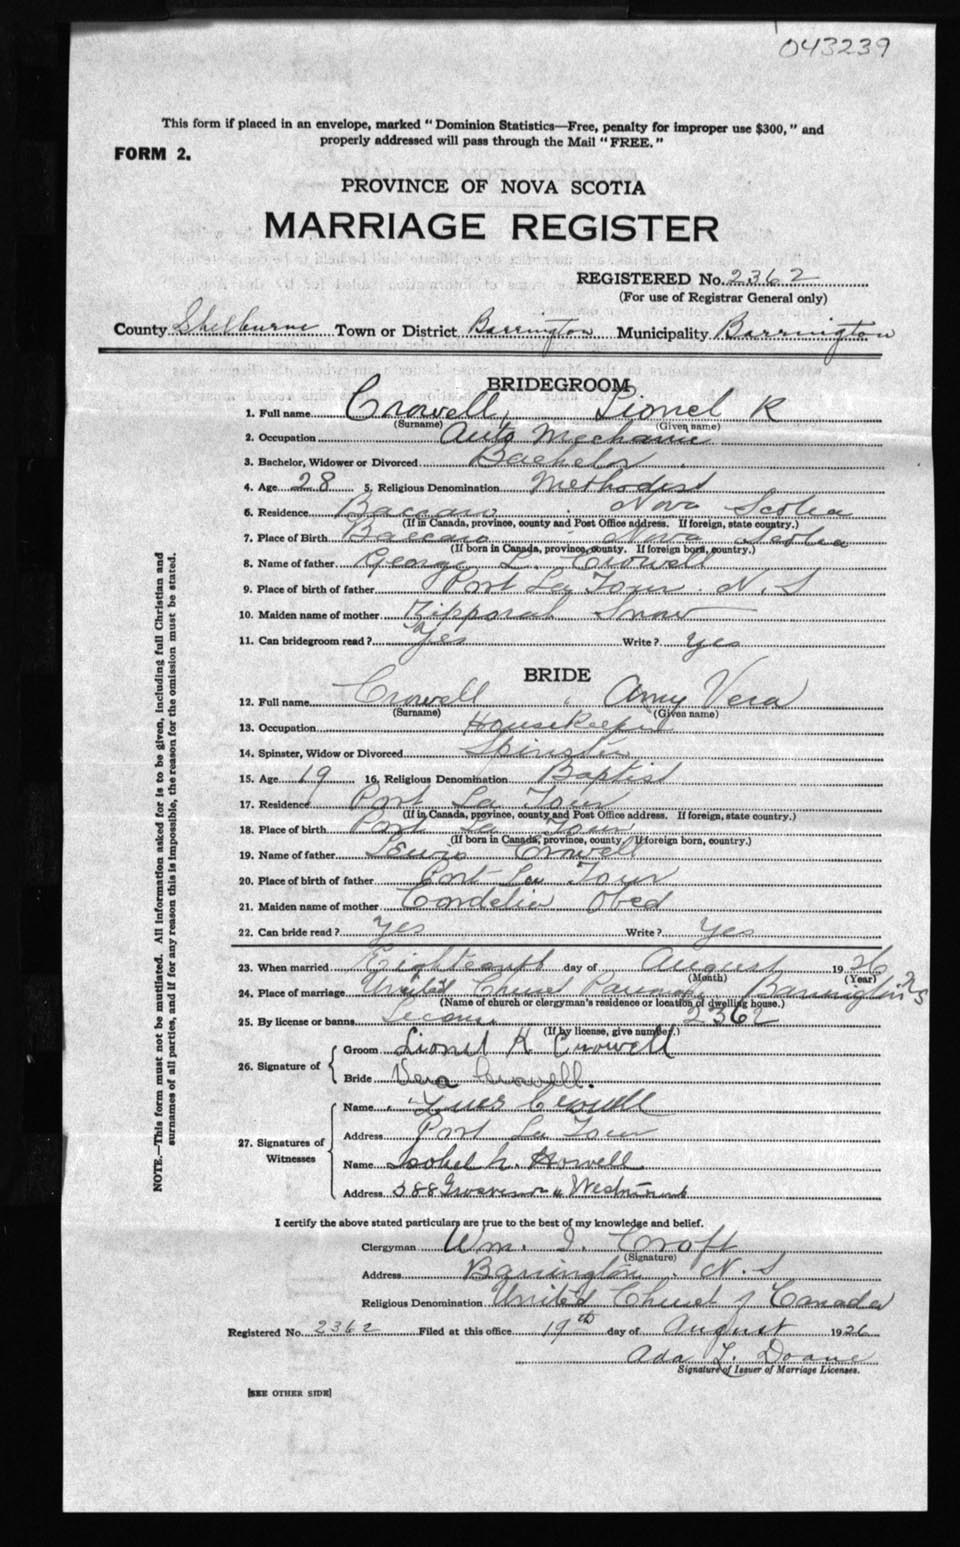 043239
This form if placed in an envelope, marked "Dominion Statistics—Free, penalty for improper use $300," and
properly addressed will pass through the Mail "FREE."
FORM 2.
PROVINCE OF NOVA SCOTIA
MARRIAGE REGISTER
REGISTERED No. 2362
(For use of Registrar General only)
County Shelburne Town or District Barrington Municipality Barrington
BRIDEGROOM
1. Full name Crowell, Lionel K
(Surname) (Given name)
2. Occupation Auto Mechanic
3. Bachelor, Widower or Divorced Bachelor
4. Age 28 5. Religious Denomination Methodist
6. Residence Baccaro Nova Scotia
(If in Canada, province, county and Post Office address. If foreign, state country.)
7. Place of Birth Baccaro Nova Scotia
(If born in Canada, province, county. If foreign born, country.)
8. Name of father George L. Crowell
9. Place of birth of father Port La Tour N.S
10. Maiden name of mother Zipporah Snow
11. Can bridegroom read? Yes Write? Yes
BRIDE
12. Full name Crowell, Amy Vera
(Surname) (Given name)
13. Occupation Housekeeper
14. Spinster, Widow or Divorced Spinster
15. Age 19 16. Religious Denomination Baptist
17. Residence Port La Tour
(If in Canada, province, county and Post Office address. If foreign, state country.)
18. Place of birth Port La Tour
(If born in Canada, province, county. If foreign born, country.)
19. Name of father Lewis Crowell
20. Place of birth of father Port La Tour
21. Maiden name of mother Cordelia Obed
22. Can bride read? Yes Write? Yes
23. When married Eighteenth day of August 1926
(Month) (Year)
24. Place of marriage United Church Parsonage Barrington NS
(Name of church or clergyman's residence or location of dwelling house.)
25. By license or banns License 2362
(If by license, give number.)
26. Signature of
Groom Lionel K Crowell
Bride Vera Crowell.
27. Signatures of Witnesses
Name Crowell
Address Port La Tour
Name Isobel h. Howell
Address 388 Grosvenor
I certify the above stated particulars are true to the best of my knowledge and belief.
Clergyman Wm. I. Croft
(Signature)
Address Barrington N.S
Religious Denomination United Church of Canada
Registered No. 2362 Filed at this office 19th day of August 1926
Ada L. Doane
Signature of Issuer of Marriage Licenses.
[SEE OTHER SIDE]
NOTE.—This form must not be mutilated. All information asked for is to be given, including full Christian and
surnames of all parties, and if for any reason this is impossible, the reason for the omission must be stated.